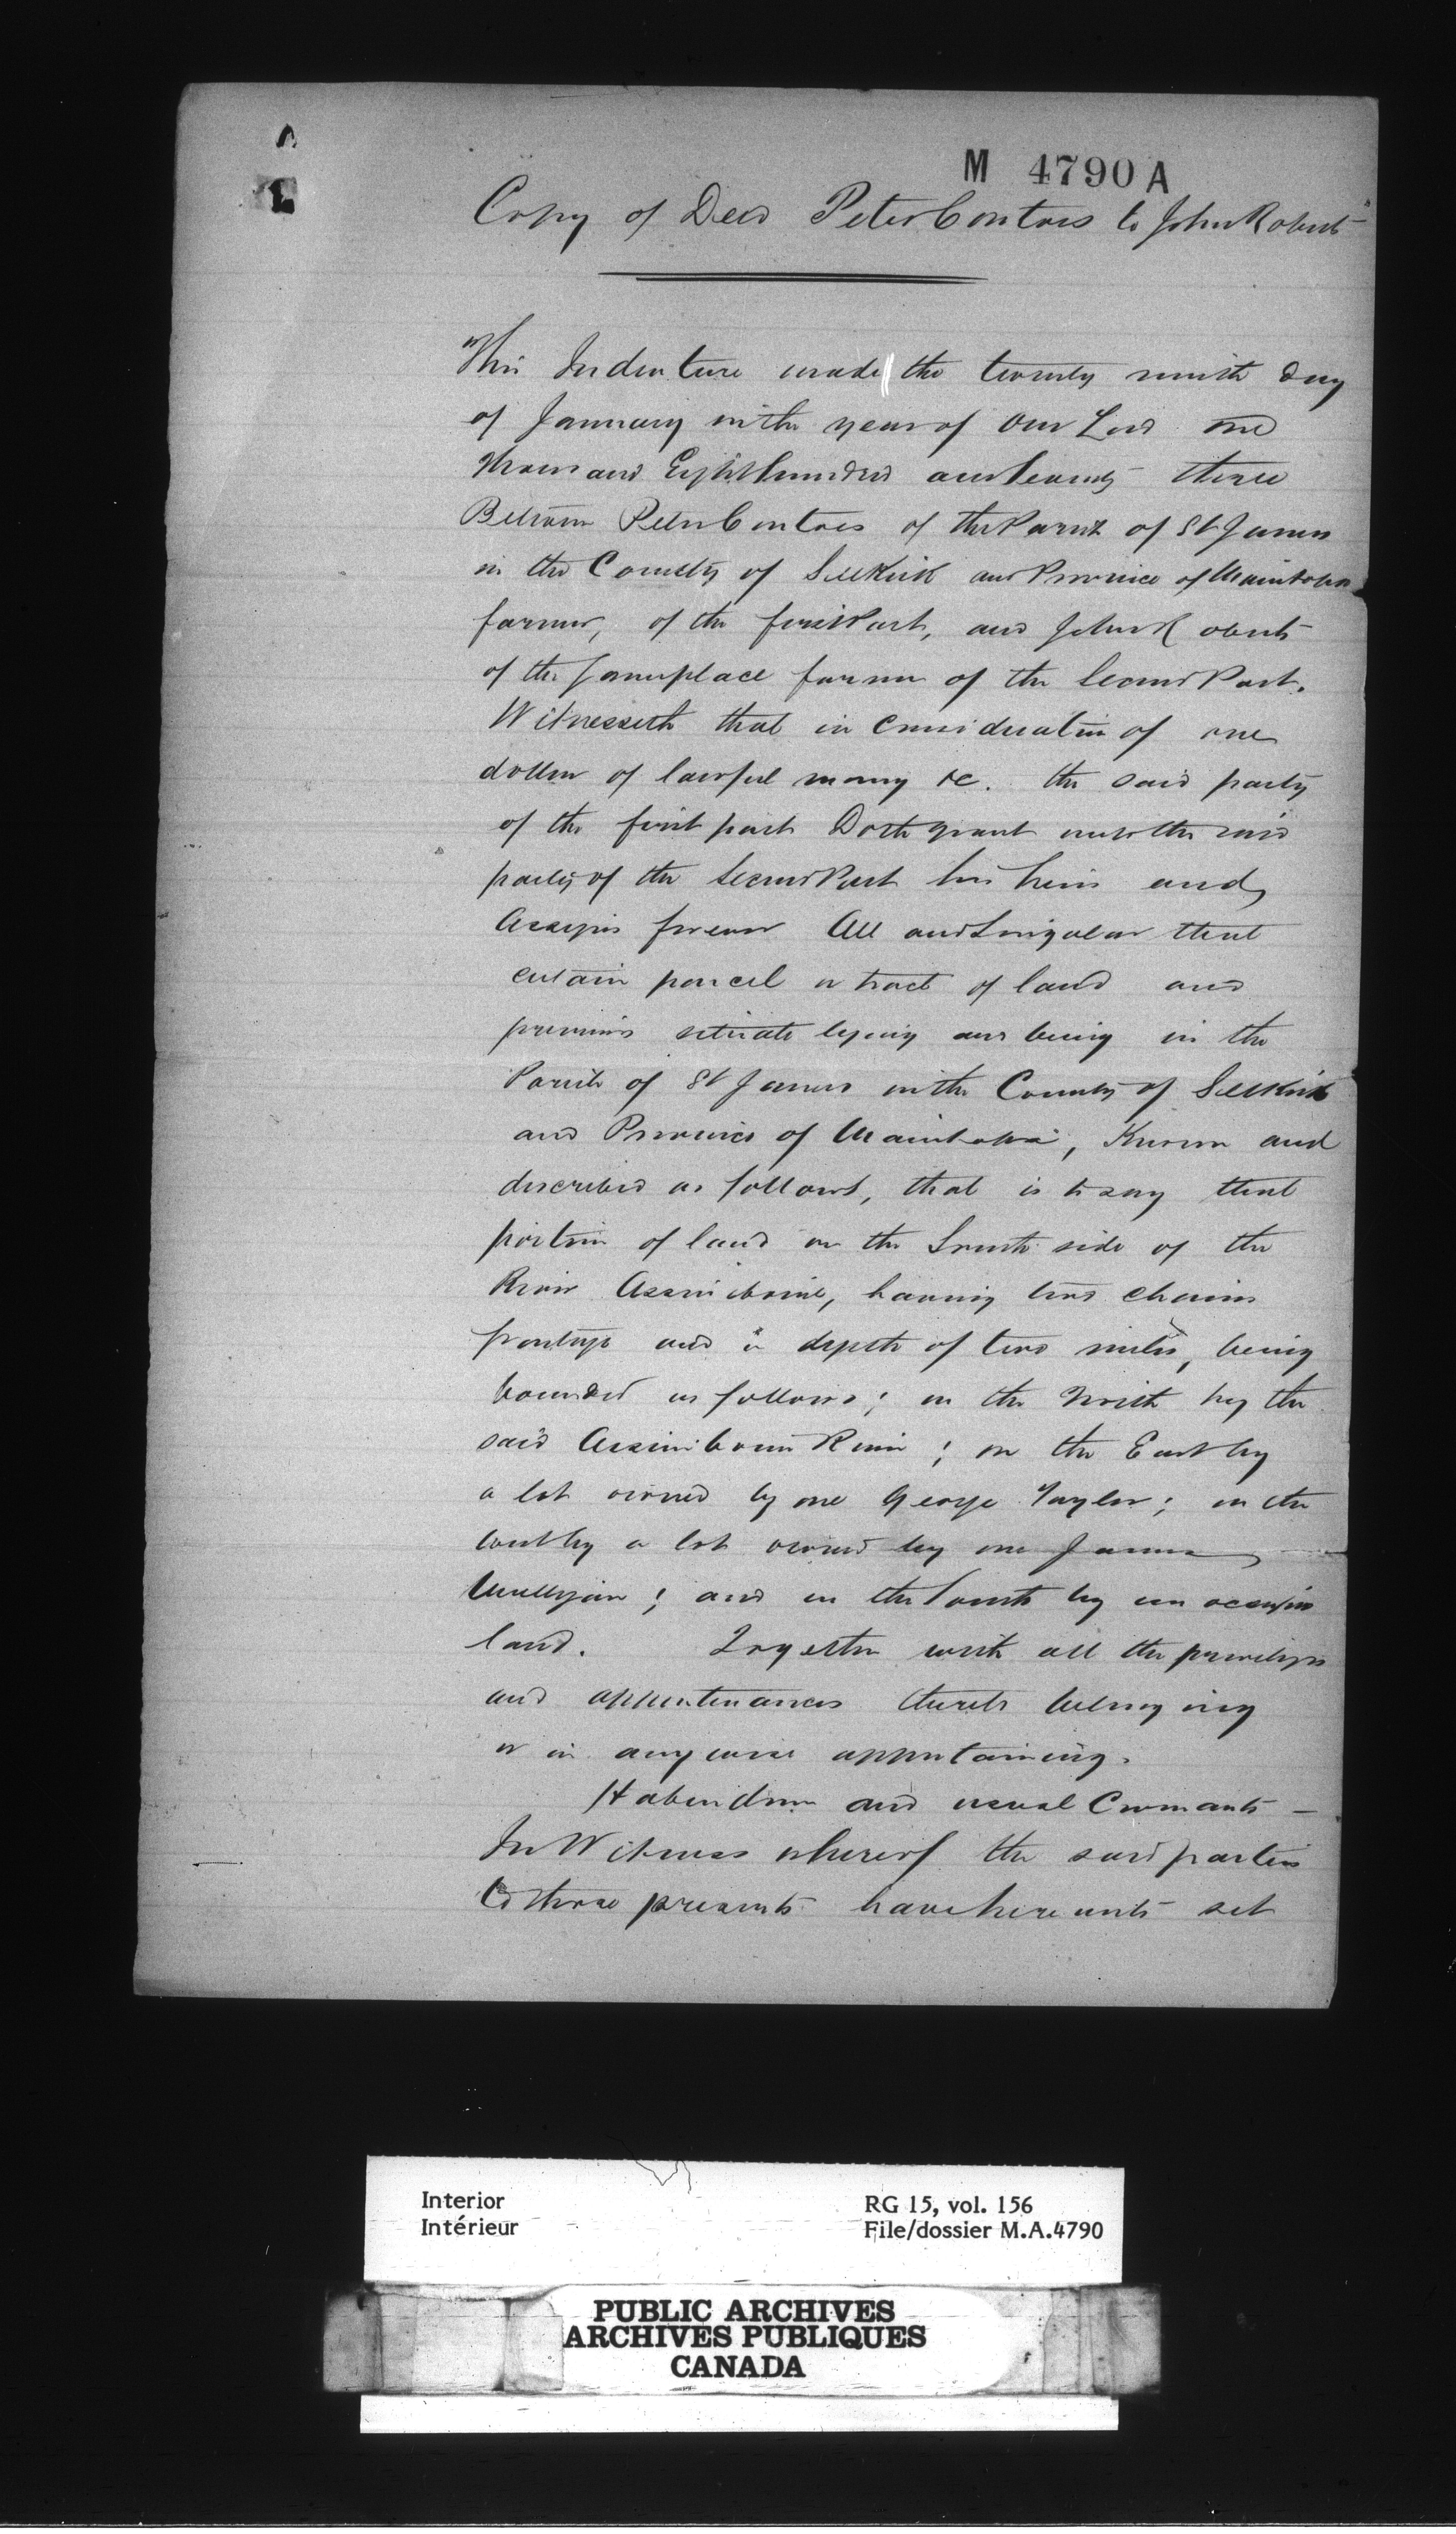 M 4790 A
Copy of Deed Peter Contois to John Roberts
"This Indenture made the twenty ninth day
of January in the year of Our Lord one
thousand Eight hundred and seventy three
Between Peter Contois of the Parish of St James
in the County of Selkirk and Province of Manitoba
farmer, of the first Part, and John Roberts
of the same place farmer of the Second Part.
Witnesseth that in consideration of one
dollar of lawful money &c. the said party
of the first part Doth grant unto the said
party of the Second Part his heirs and
Assigns forever All and Singular that
certain parcel or tract of land and
premises situate lying and being in the
Parish of St James in the County of Selkirk
and Province of Manitoba, Known and
described as follows, that is to say that
portion of land on the South side of the
River Assiniboine, having two chains
frontage and a depth of two miles, being
bounded as follows; on the North by the
said Assiniboine River; on the East by
a lot owned by one George Taylor; on the
West by a lot owned by one James
; and on the South by unoccupied
land. Together with all the privileges
and appurtenances thereto belonging
or in anywise appertaining.
Habendum and usual Covenants —
In Witness whereof the said parties
to these presents have hereunto set
Interior
Intérieur
RG 15, vol. 156
File/dossier M.A.4790
PUBLIC ARCHIVES
ARCHIVES PUBLIQUES
CANADA